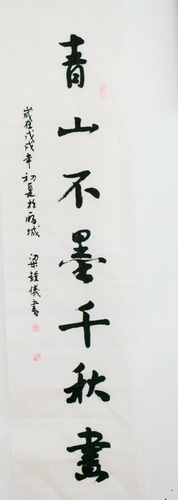 青山不墨千秋画
歲在戊戌年初夏於雁城 梁鍾儀書